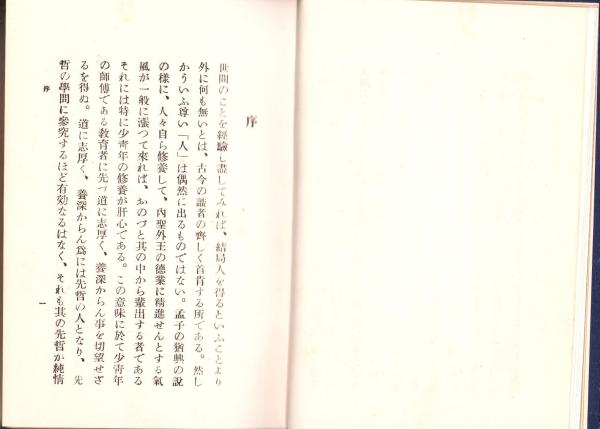 序
世間のことを經驗し盡してみれば、結局人を得るといふことより
外に何も無いとは、古今の識者の齊しく首肯する所である。然し
かういふ尊い「人」は偶然に出るものではない。孟子の猶興の說
の樣に、人々自ら修養して、內聖外王の德業に精進せんとする氣
風が一般に漲つて來れば、おのづと其の中から輩出する者である
それには特に少靑年の修養が肝心である。この意味に於て少靑年
の師傅である敎育者に先づ道に志厚く、養深からん事を切望せざ
るを得ぬ。道に志厚く、養深からん爲には先哲の人となり、先
哲の學問に參究するほど有効なるはなく、それも其の先哲が純情
序
一